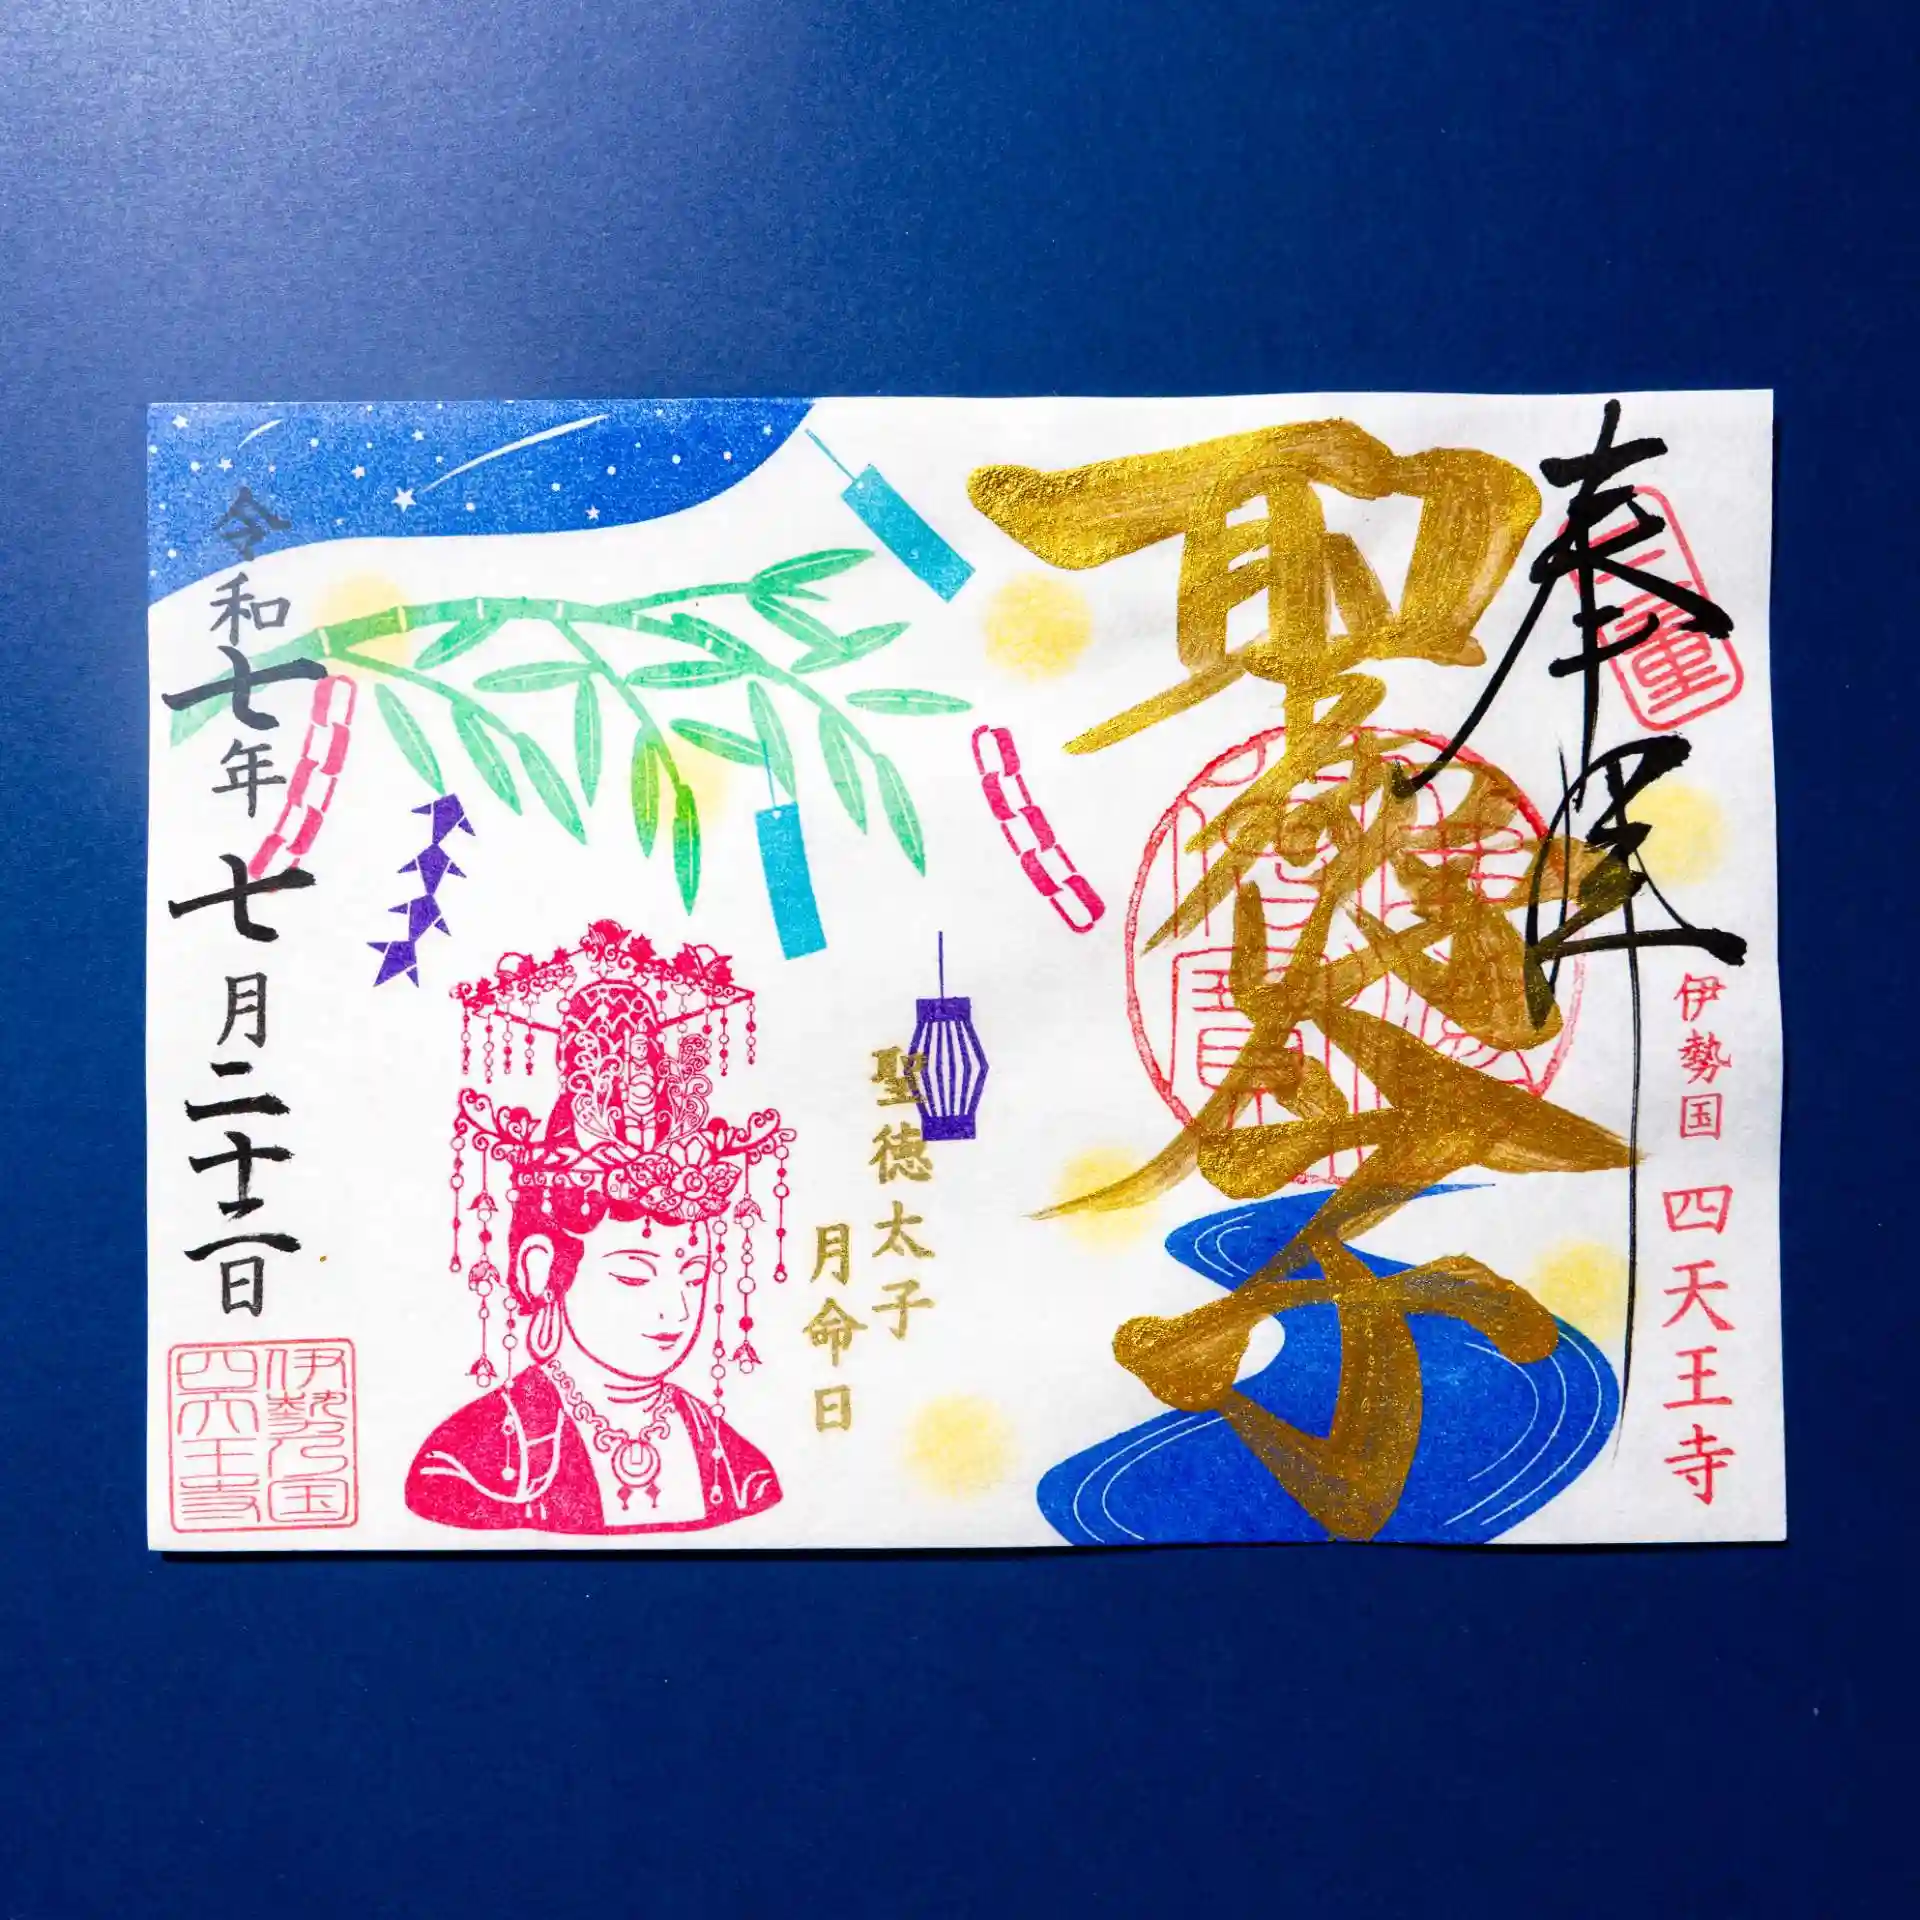 奉拝
三重
伊勢国
四天王寺
聖徳太子
聖徳太子
月命日
令和七年七月二十二日
伊勢国
四天王寺